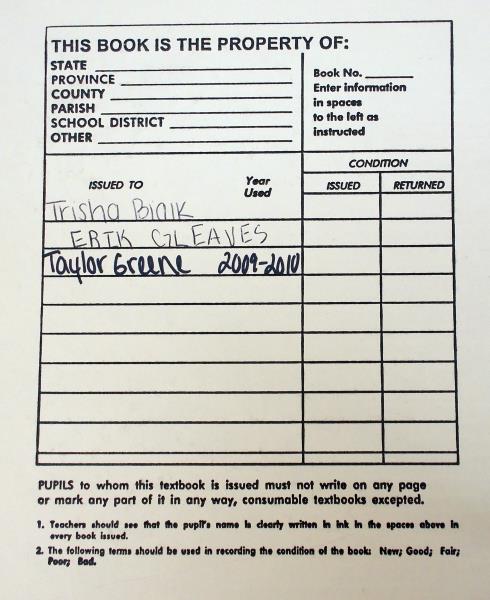 THIS BOOK IS THE PROPERTY OF:
STATE
PROVINCE
COUNTY
PARISH
SCHOOL DISTRICT
OTHER
Book No.
Enter information
in spaces
to the left as
instructed
ISSUED TO
Year
Used
CONDITION
ISSUED
RETURNED
Trisha Bialk
ERIK GLEAVES
Taylor Greene 2009-2010
PUPILS to whom this textbook is issued must not write on any page
or mark any part of it in any way, consumable textbooks excepted.
1. Teachers should see that the pupil's name is clearly written in ink in the spaces above in
every book issued.
2. The following terms should be used in recording the condition of the book: New; Good; Fair;
Poor; Bad.